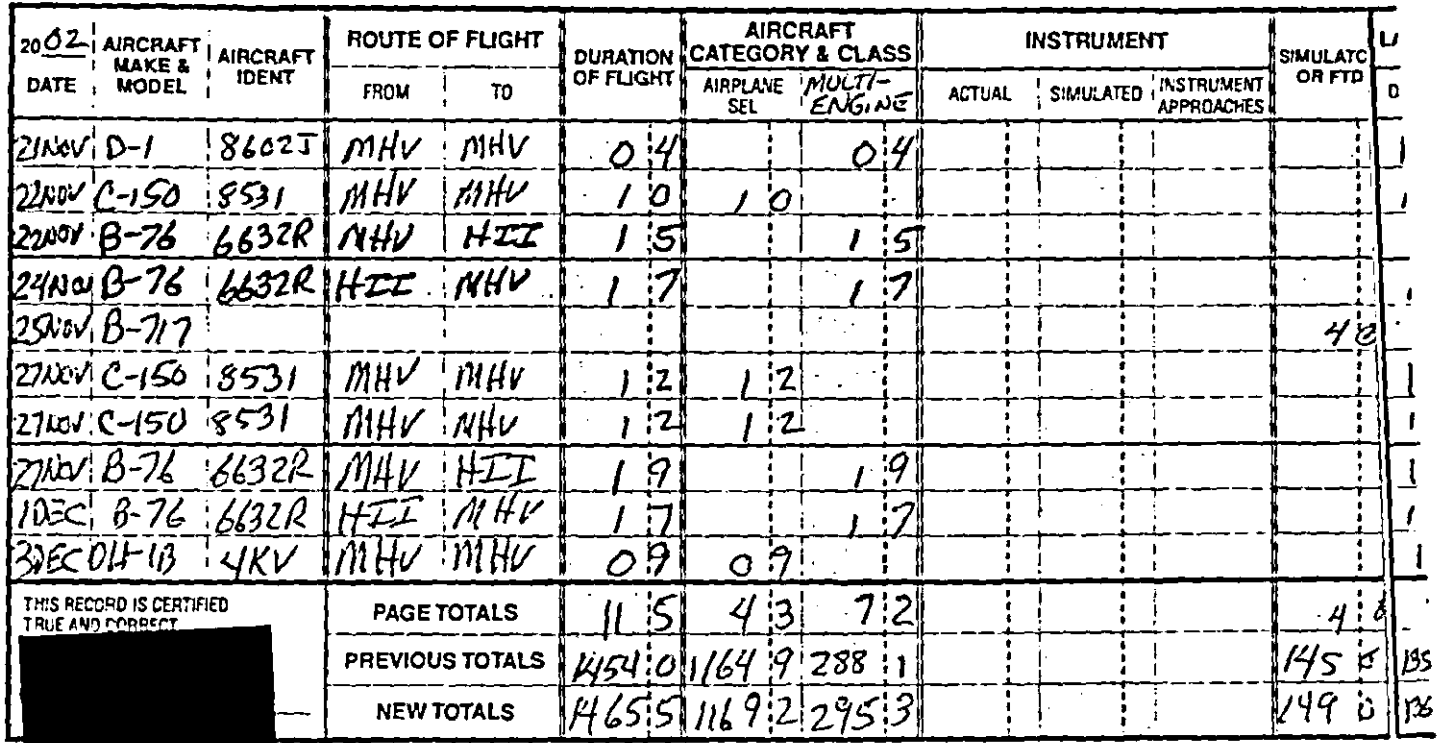 2002 AIRCRAFT MAKE & MODEL AIRCRAFT IDENT ROUTE OF FLIGHT DURATION OF FLIGHT AIRCRAFT CATEGORY & CLASS INSTRUMENT SIMULATO OR FTD
DATE FROM TO AIRPLANE SEL MULTI-ENGINE ACTUAL SIMULATED INSTRUMENT APPROACHES D
21NOV D-1 8602J MHV MHV 0 4 0 4 1
22NOV C-150 8531 MHV MHV 1 0 1 0 1
22NOV B-76 6632R MHV HII 1 5 1 5
24NOV B-76 6632R HII MHV 1 7 1 7 1
25NOV B-717 4 0
27NOV C-150 8531 MHV MHV 1 2 1 2 1
27NOV C-150 8531 MHV MHV 1 2 1 2 1
27NOV B-76 6632R MHV HII 1 9 1 9 1
1DEC B-76 6632R HII MHV 1 7 1 7 1
3DEC DH-1B 4KV MHV MHV 0 9 0 9 1
THIS RECORD IS CERTIFIED TRUE AND CORRECT
PAGE TOTALS 11 5 4 3 7 2 4
PREVIOUS TOTALS 1454 0 1164 9 288 1 145
NEW TOTALS 1465 5 1169 2 295 3 149